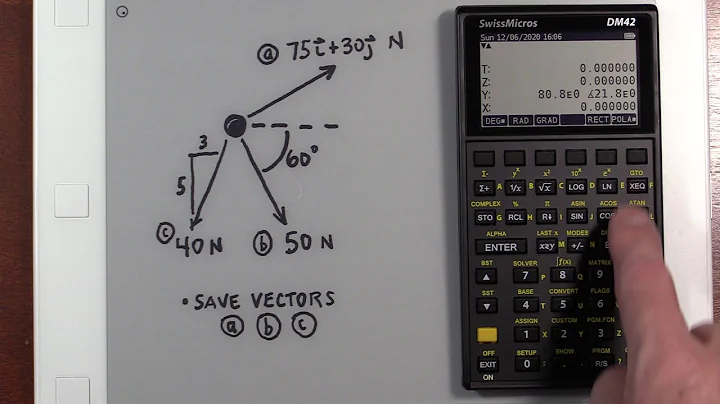 ⓐ 75i⃗+30j⃗ N
60°
3
5
ⓒ 40N
ⓑ 50 N
• SAVE VECTORS
ⓐ ⓑ ⓒ
SwissMicros DM42
Sun 12/06/2020 16:06
T: 0.000000
Z: 0.000000
Y: 80.8E0 ∡21.8E0
X: 0.000000
DEG▪ RAD GRAD RECT POLA▪
Σ- yˣ x² 10ˣ eˣ GTO
Σ+ A 1/x B √x C LOG D LN E XEQ F
COMPLEX % π ASIN ACOS ATAN
STO G RCL H R↓ I SIN J COS L
ALPHA LAST x MODES
ENTER x≷y M +/- N E
BST SOLVER ∫f(x) MATRIX
▲ 7 P 8 9
SST BASE CONVERT FLAGS
▼ 4 T 5 U 6
ASSIGN CUSTOM PGM.FCN
1 X 2 Y 3 Z
OFF SETUP SHOW PRGM
EXIT 0 . R/S
ON